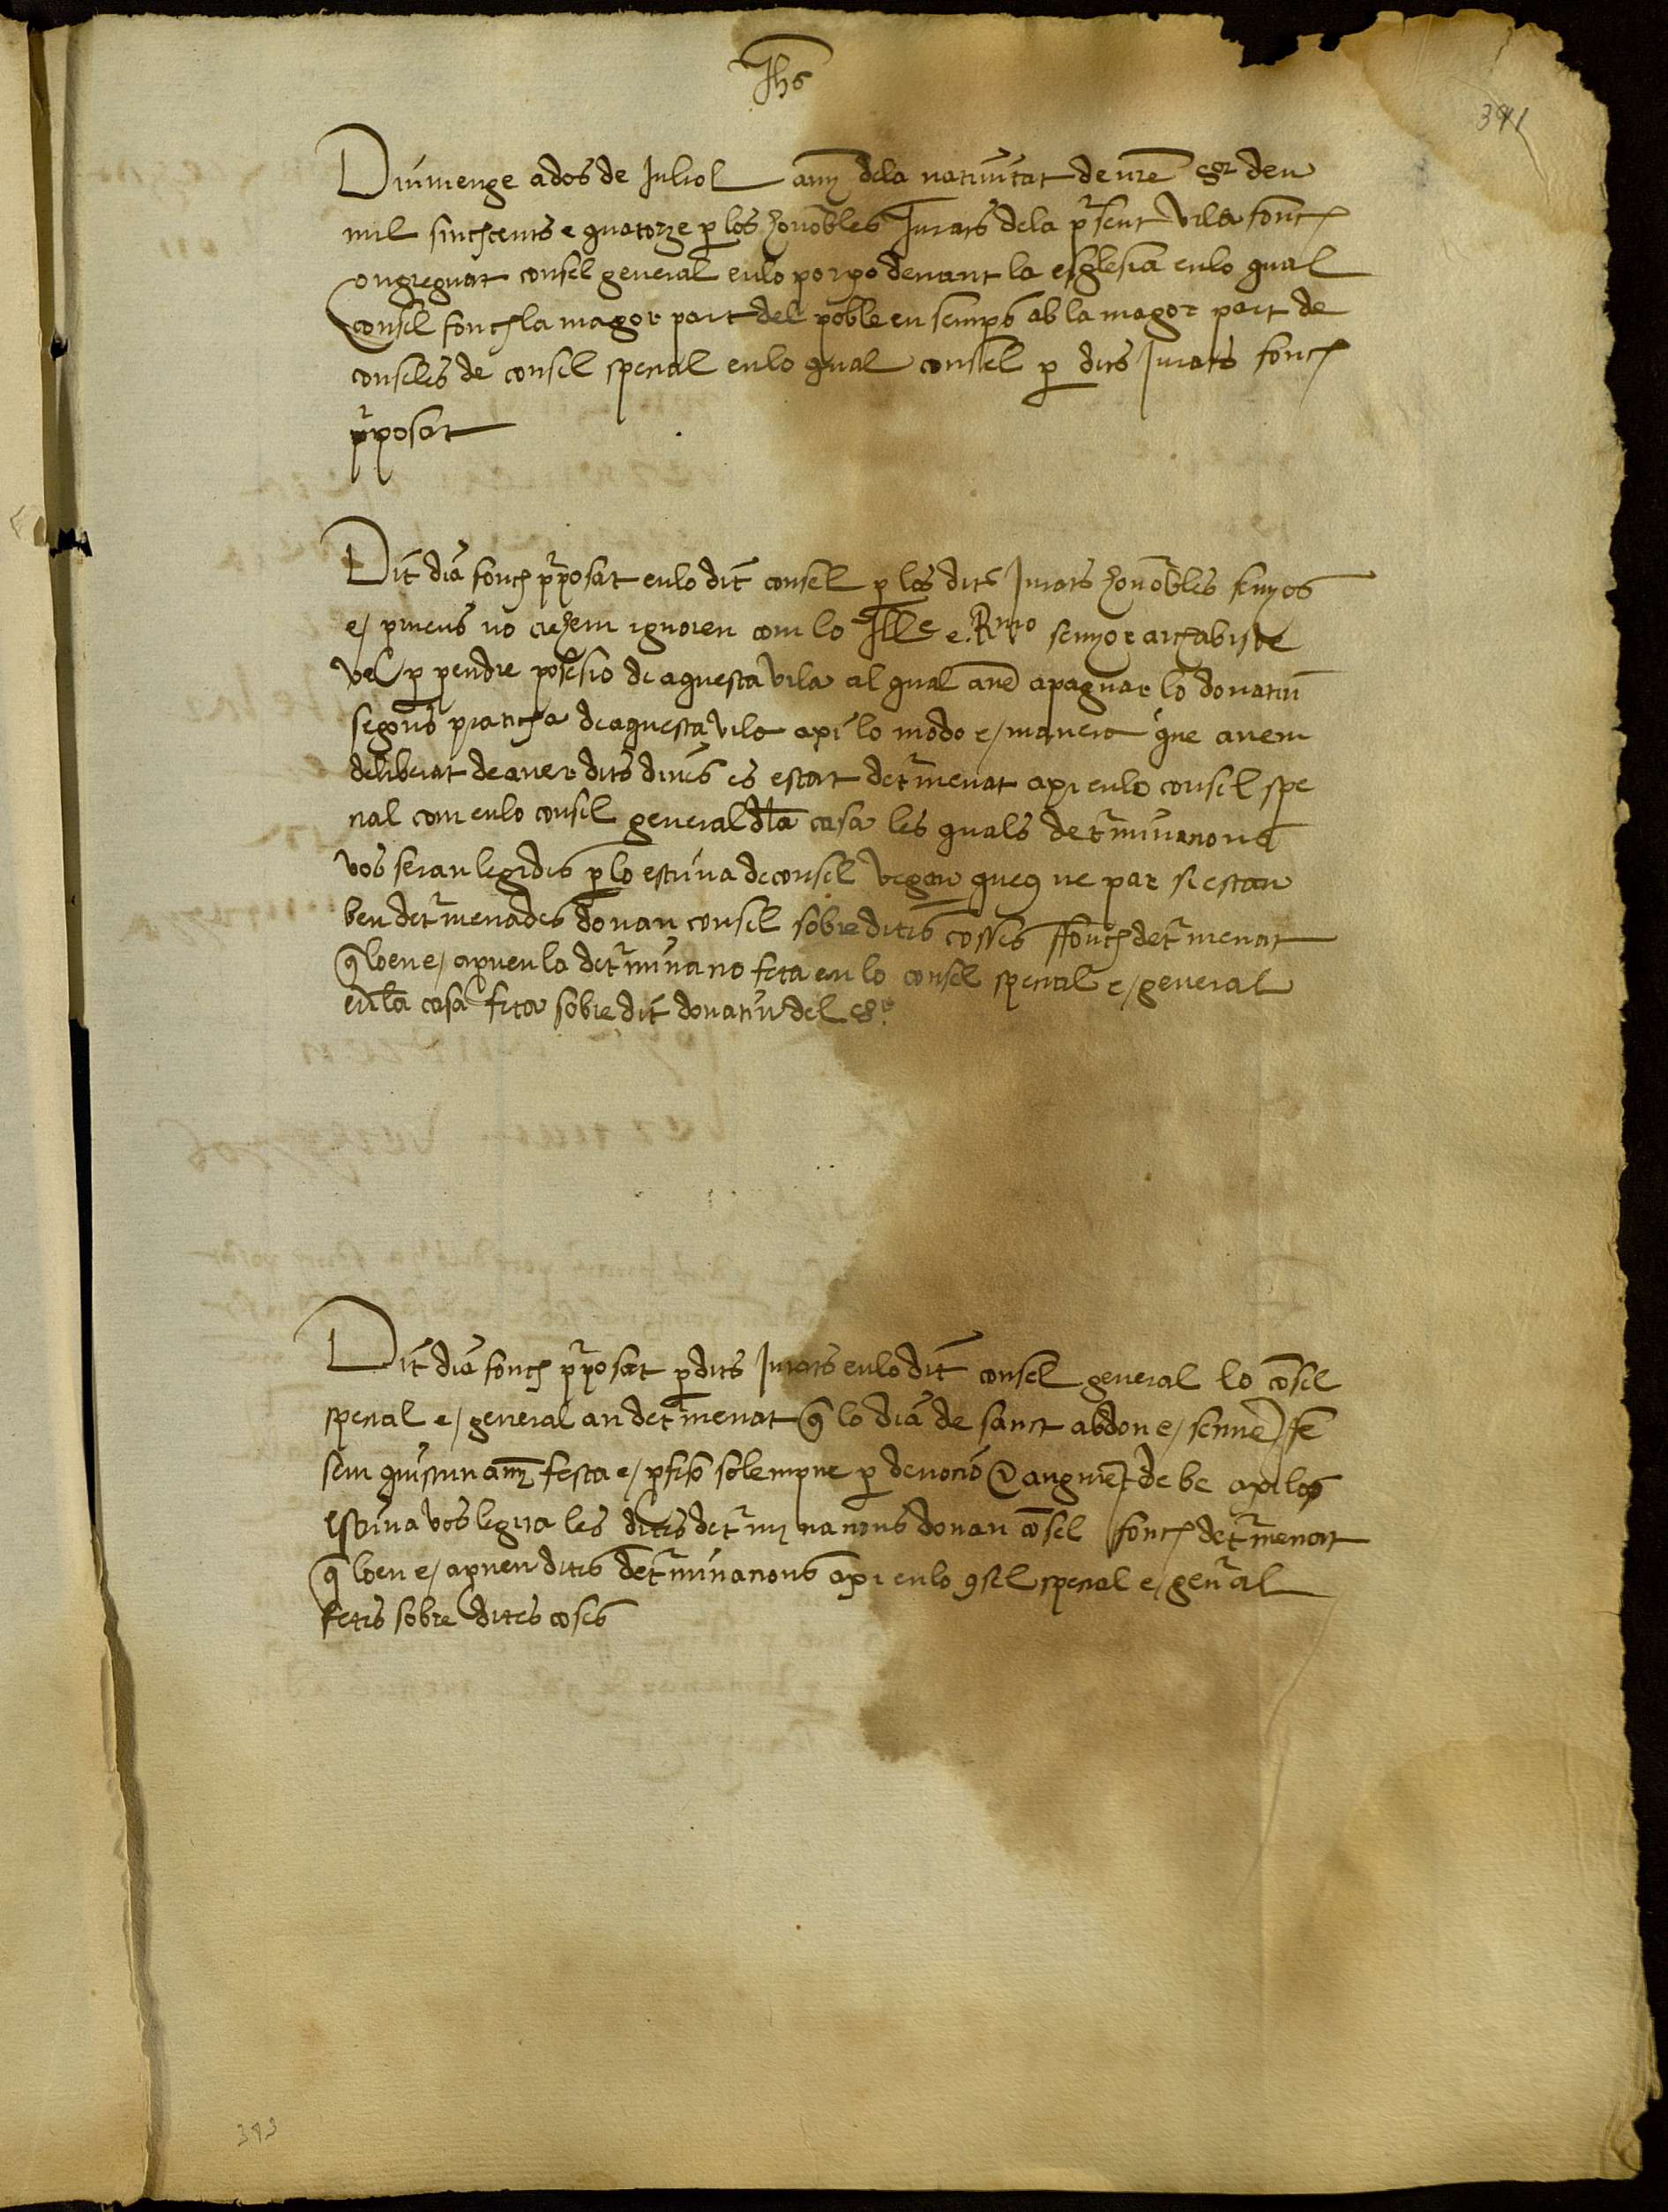 Jhs
391
Diumenge a dos de Juliol any dela natiuitat de nre Sr deu
mil sinchcents e quatorze p los honobles Jurats dela psent vila fonch
congreguat consel general enlo porxo denant la esglesia enlo qual
consel fonch la magor part del poble ensemps ab la magor part de
conseles de consel specal enlo qual consel p dits Jurats fonch
pposat
Dit dia fonch pposat enlo dit consel p los dits Jurats honobles senyos
e/ prmens no crehem ignoren com lo Ille e. Rmo senyor archabisbe
ve p pendre posesio de aquesta vila al qual auem apaguar lo donatiu
segons praticha de aquesta vila axi lo modo e/ manera que auem
deliberat de auer dits dines es estat detmenat axi enlo consel spe
cial com enlo consel general dla casa les quals detminacions
vos seran legides p lo escriua de consel vegau queus ne par si estan
ben detmenades donau consel sobre dites cosses ffonch detmenat
q loen e/ aproen la detminacio feta en lo consel specal e/ general
en la casa feta sobre dit donatiu del Sr
Dit dia fonch pposat p dits Jurats enlo dit consel general lo cosel
specal e/ general an detmenat q lo dia de sanct abdon e/ senne fe
sem quiscun any festa e/ pfeso solempne p deuocio e augmet de be axi los
escriua vos legira les dites detminacions donau cosel fonch detmenat
q loen e/ aproen dites detminacions axi enlo cosel specal e/ genral
fetes sobre dites coses
393